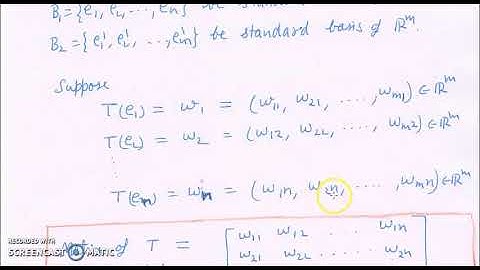 B₁ = {e₁, e₂, ..., eₙ} be
B₂ = {e₁', e₂', ..., eₘ'} be standard basis of ℝᵐ.
Suppose
T(e₁) = w₁ = (w₁₁, w₂₁, ...., wₘ₁) ∈ ℝᵐ
T(e₂) = w₂ = (w₁₂, w₂₂, ...., wₘ₂) ∈ ℝᵐ
⋮
T(eₙ) = wₙ = (w₁ₙ, w₂ₙ, ...., wₘₙ) ∈ ℝᵐ
Matrix of T = [ w₁₁ w₁₂ ... w₁ₙ
w₂₁ w₂₂ ..... w₂ₙ
RECORDED WITH
SCREENCAST-O-MATIC